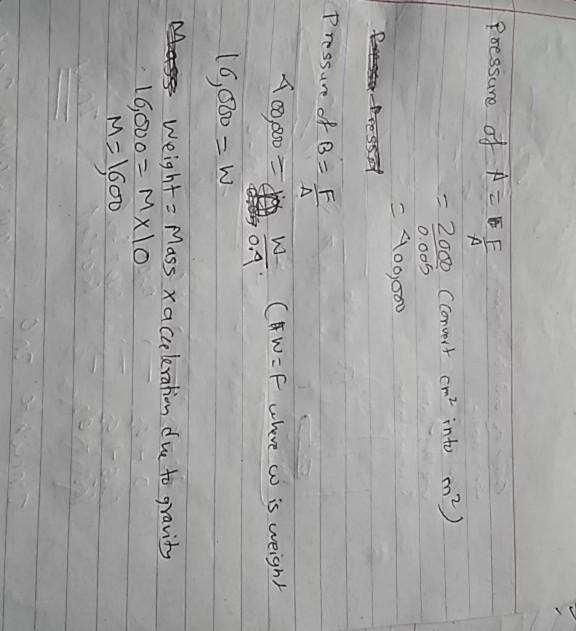 Pressure of A = F
A
= 2000 (convert cm² into m²)
0.005
= 400,000
Pressure of B = F
A
400,000 = W (W = F where w is weight
0.4
16,000 = W
Mass Weight = Mass x acceleration due to gravity
16,000 = M x 10
M = 1,600